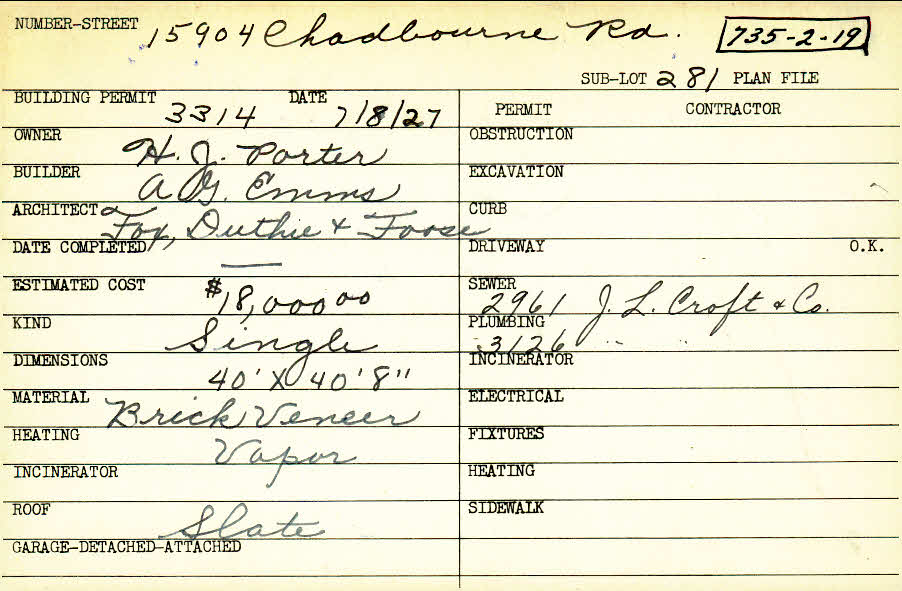 NUMBER-STREET 15904 Chadbourne Rd. 735-2-19
SUB-LOT 281 PLAN FILE
BUILDING PERMIT 3314 DATE 7/8/27
PERMIT CONTRACTOR
OWNER H. J. Porter
OBSTRUCTION
BUILDER A G. Emms
EXCAVATION
ARCHITECT Fox, Duthie & Foose
CURB
DATE COMPLETED —
DRIVEWAY O.K.
ESTIMATED COST $18,000 00
SEWER 2961 J. L. Croft & Co.
KIND Single
PLUMBING 3126 " "
DIMENSIONS 40' X 40'8"
INCINERATOR
MATERIAL Brick Veneer
ELECTRICAL
HEATING Vapor
FIXTURES
INCINERATOR
HEATING
ROOF Slate
SIDEWALK
GARAGE-DETACHED-ATTACHED